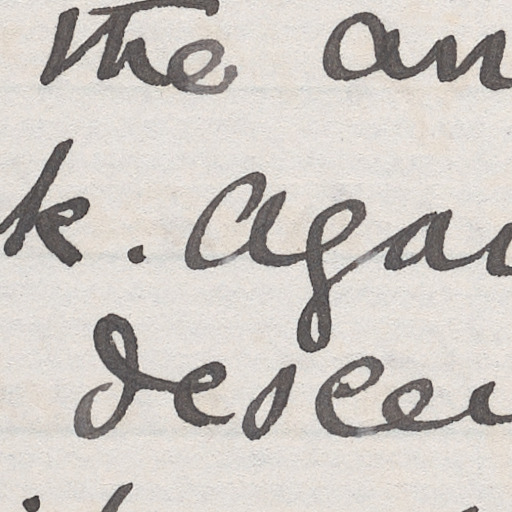 the an
k. Agai
descen